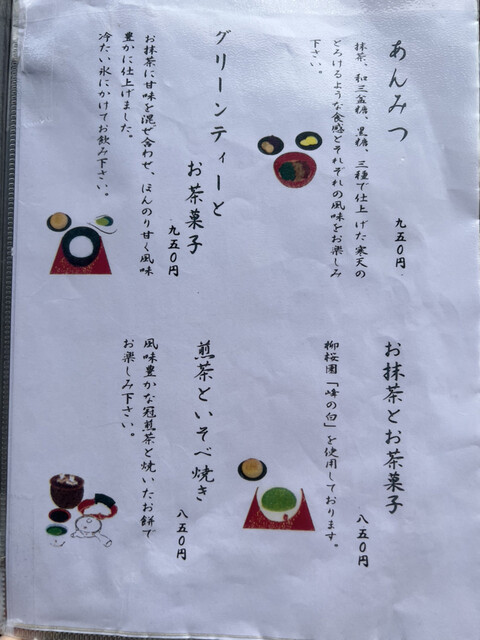 あんみつ
九五〇円
抹茶、和三盆糖、黒糖、三種で仕上げた寒天の
とろけるような食感とそれぞれの風味をお楽しみ
下さい。
グリーンティーと
お茶菓子
九五〇円
お抹茶に甘味を混ぜ合わせ、ほんのり甘く風味
豊かに仕上げました。
冷たい氷にかけてお飲み下さい。
お抹茶とお茶菓子
八五〇円
柳桜園「峰の白」を使用しております。
煎茶といそべ焼き
八五〇円
風味豊かな冠煎茶と焼いたお餅で
お楽しみ下さい。